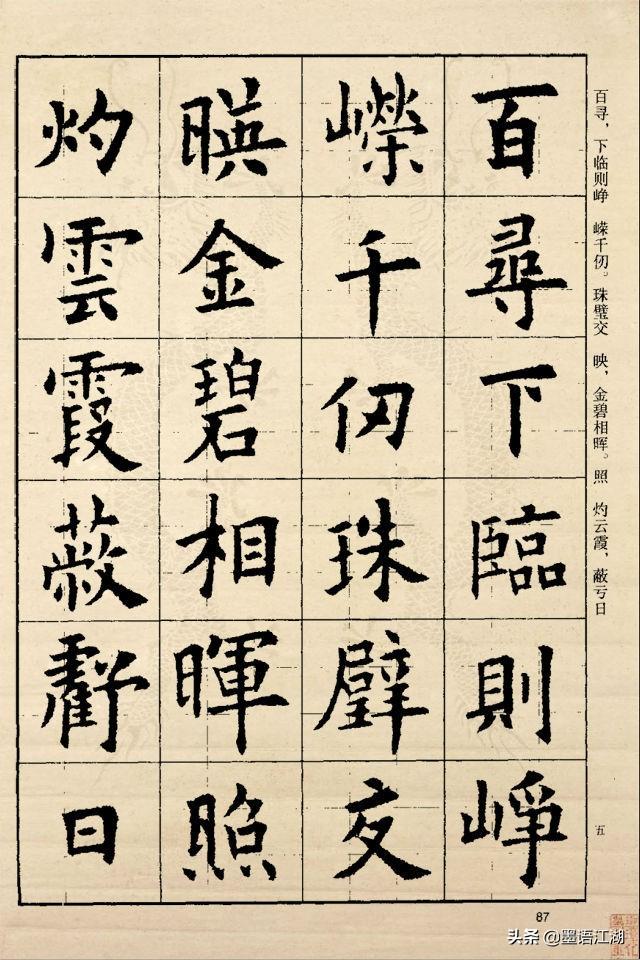 百尋下臨則崢
嶸千仞珠璧交
暎金碧相暉照
灼雲霞蔽虧日
百寻，下临则峥 嵘千仞。珠璧交 映，金碧相晖。照 灼云霞，蔽亏日
五
87
头条 @墨语江湖